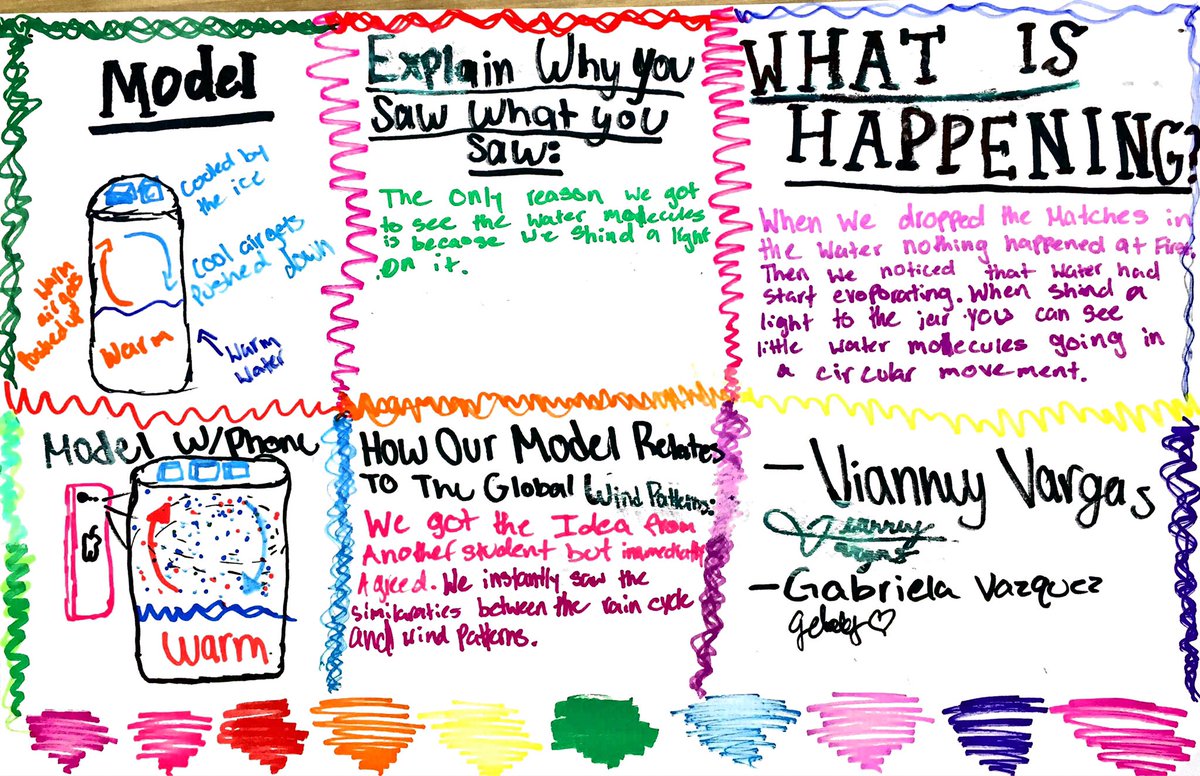 Model
cooled by
the ice
cool air gets
pushed down
Warm
air gets
pushed up
Warm
Warm
Water
Explain Why you
Saw What you
Saw:
The Only reason we got
to see the water molecules
is because we shind a light
on it.
WHAT IS
HAPPENING?
When we dropped the Matches in
the Water nothing happened at First.
Then we noticed that water had
start evoporating. When shind a
light to the jar you can see
little water molecules going in
a circular movement.
Model W/Phone
Warm
How Our Model Relates
To The Global Wind Patterns:
We got the Idea from
Another student but immediatly
Agreed. We instantly saw the
similarities between the rain cycle
and wind Patterns.
- Viannuy Vargas
- Gabriela Vazquez